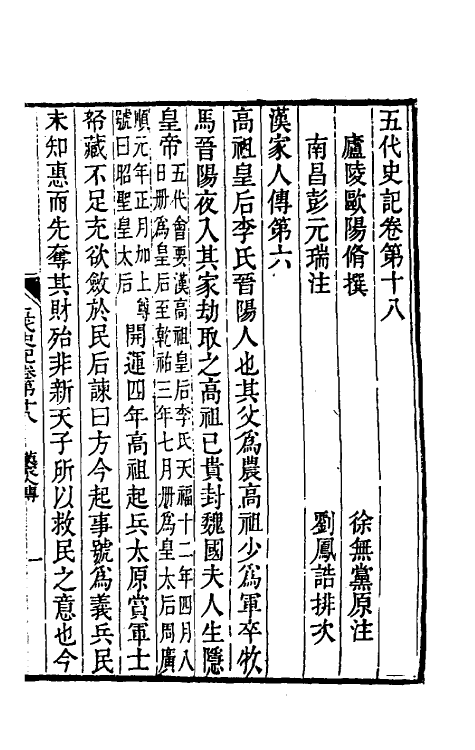 五代史記卷第十八
廬陵歐陽脩撰　徐無黨原注
南昌彭元瑞注　劉鳳誥排次
漢家人傳第六
高祖皇后李氏晉陽人也其父爲農高祖少爲軍卒牧
馬晉陽夜入其家劫取之高祖已貴封魏國夫人生隱
皇帝五代會要漢高祖皇后李氏天福十二年四月八日册爲皇后至乾祐三年七月册爲皇太后周廣
順元年正月加上尊號曰昭聖皇太后開運四年高祖起兵太原賞軍士
帑藏不足充欲斂於民后諫曰方今起事號爲義兵民
未知惠而先奪其財殆非新天子所以救民之意也今
五代史記卷第十八　漢家人傳　一